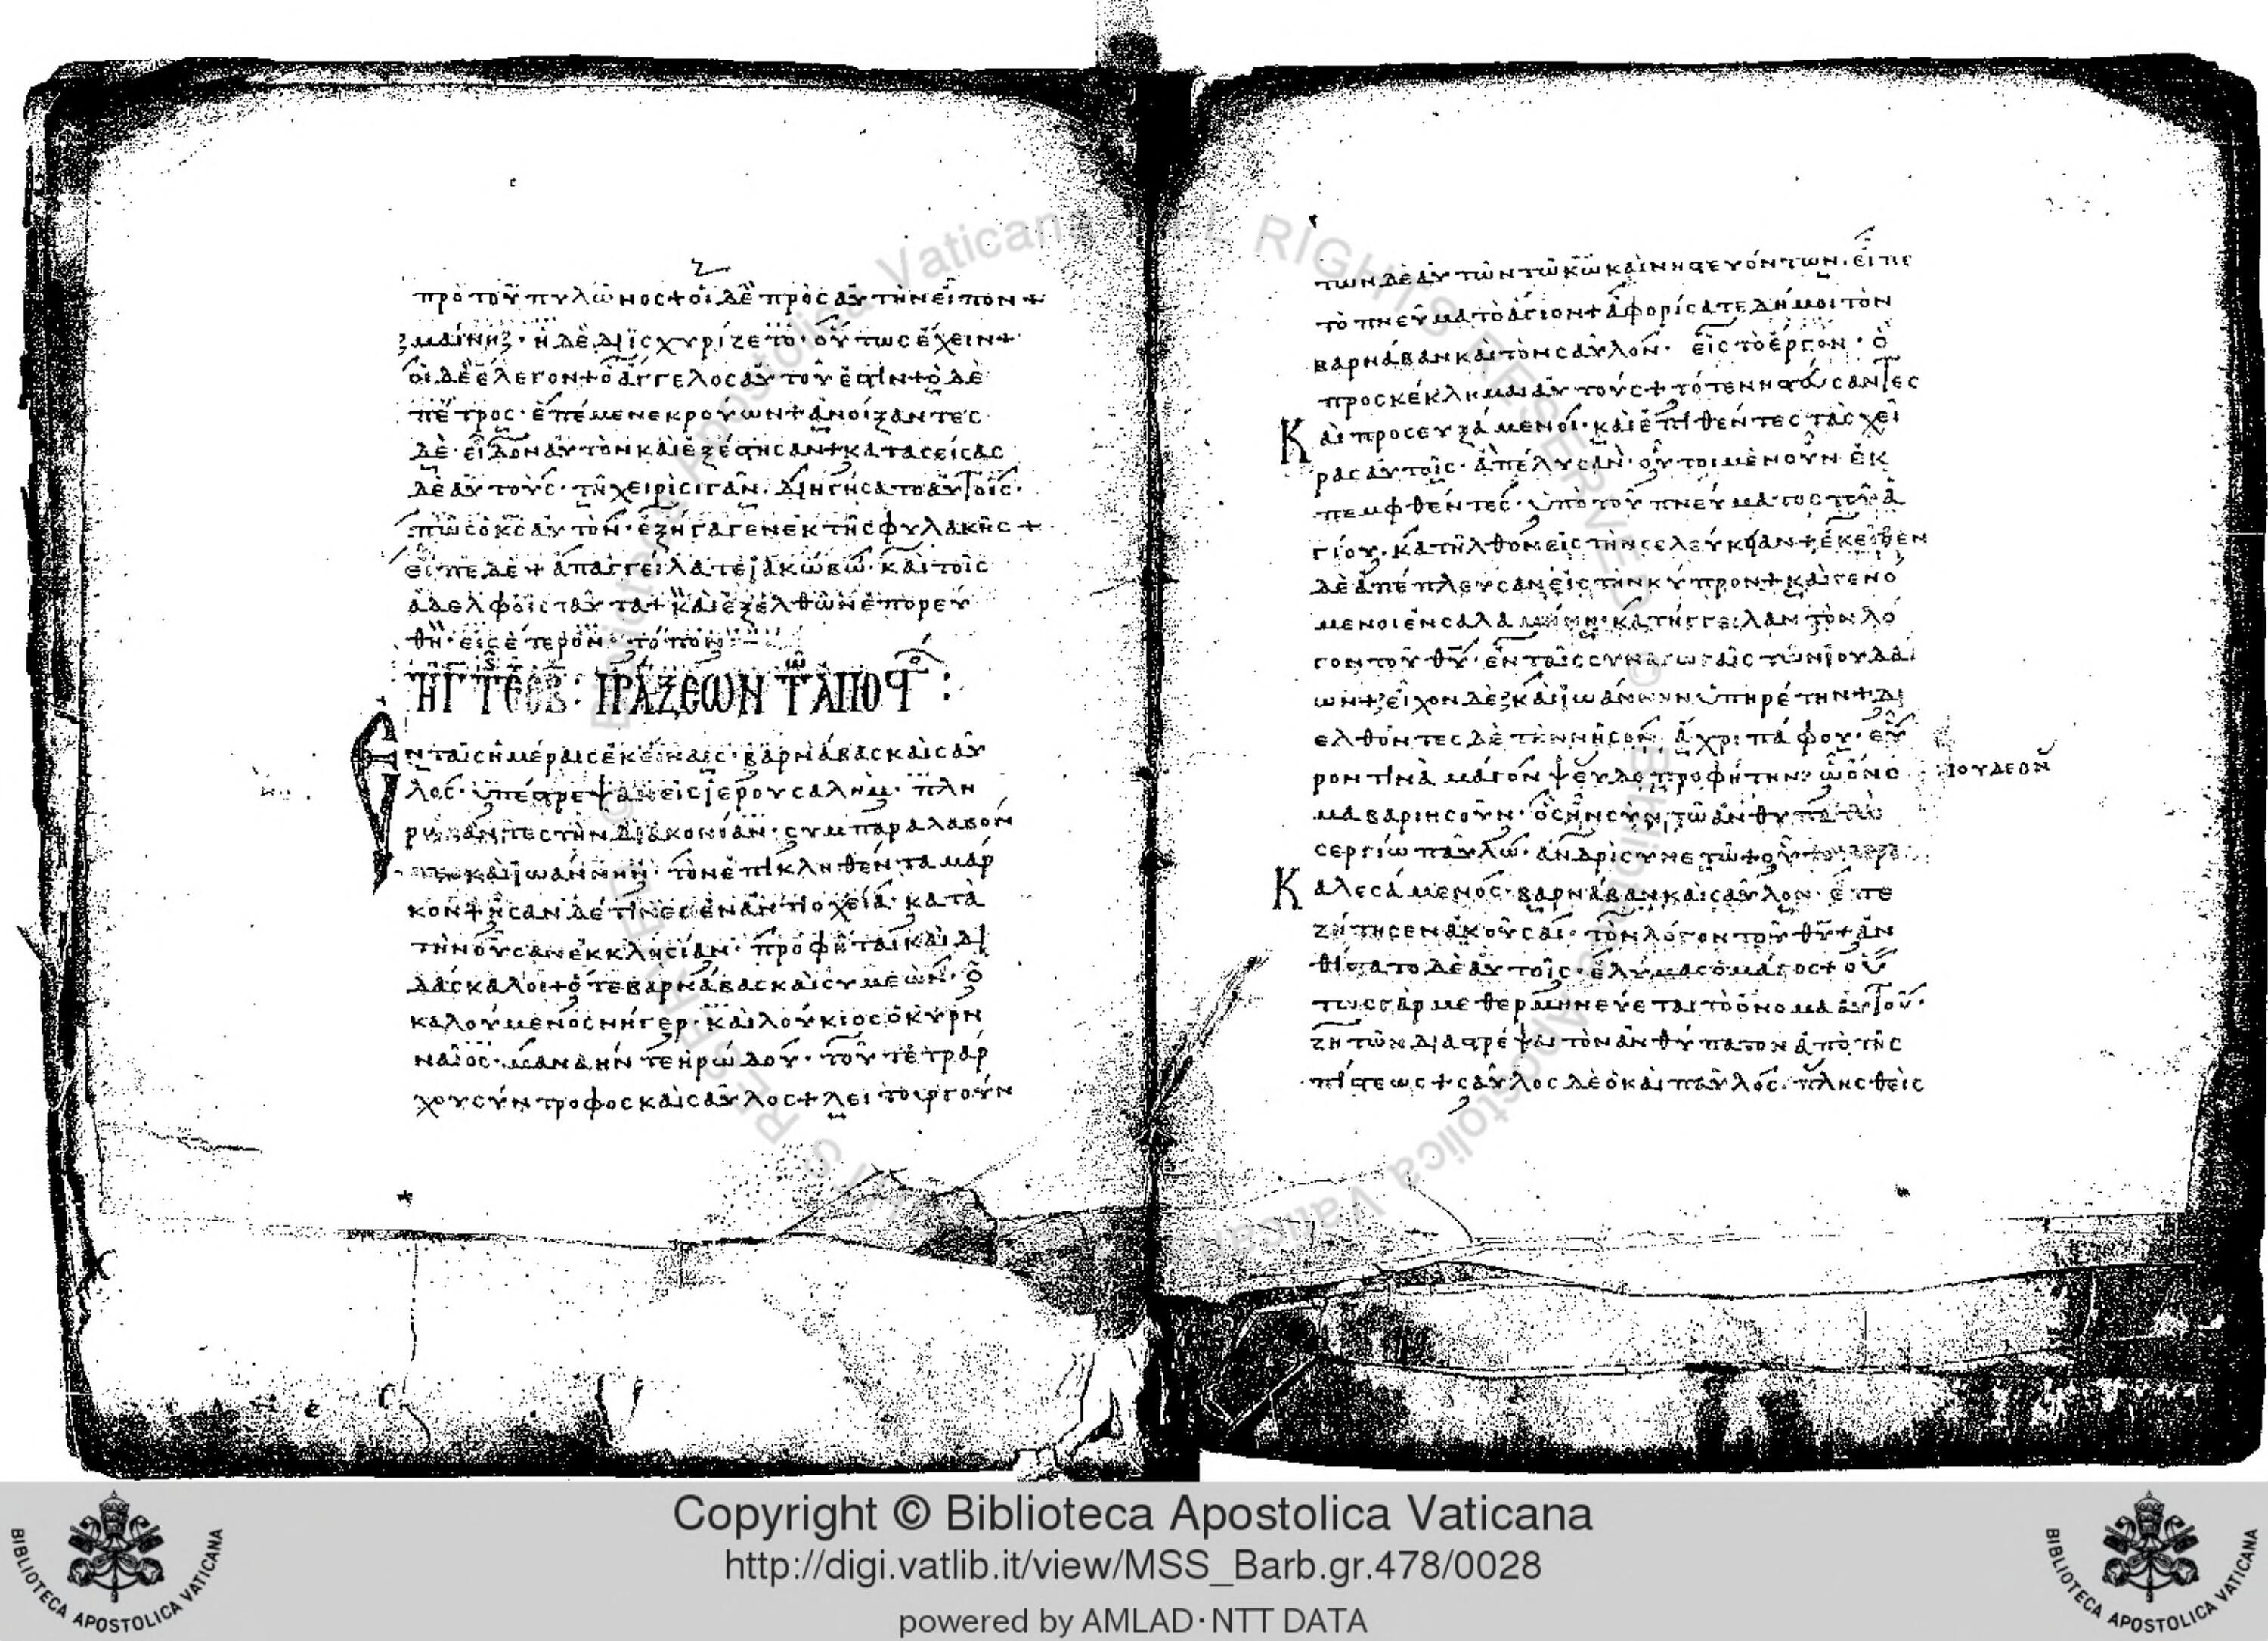 προ του πυλῶνος + οἱ δὲ πρὸς αὐτὴν εἶπον +
μαίνη · ἡ δὲ διϊσχυρίζετο · οὕτως ἔχειν +
οἱ δὲ ἔλεγον + ὁ ἄγγελος αὐτοῦ ἐστὶν + ὁ δὲ
πέτρος · ἐπέμενε κρούων + ἀνοίξαντες
δὲ · εἶδον αὐτὸν καὶ ἐξέστησαν + κατασείσας
δὲ αὐτοὺς · τῆ χειρὶ σιγᾶν · διηγήσατο αὐτοῖς ·
πῶς ὁ κς αὐτὸν · ἐξήγαγεν ἐκ τῆς φυλακῆς +
εἶπε δὲ + ἀπαγγείλατε ἰακώβω · καὶ τοῖς
ἀδελφοῖς ταῦτα + καὶ ἐξελθὼν ἐπορεύ
θη · εἰς ἕτερον · τόπον
ΠΡΑΞΕΩΝ Τ ΑΠΟΣΤ :
Εν ταῖς ἡμέραις ἐκείναις · βαρνάβας καὶ σαῦ
λος · ὑπέστρεψαν εἰς ἱερουσαλήμ · πλη
ρώσαντες τὴν διακονίαν · συμπαραλαβόν
τες καὶ ἰωάννην · τὸν ἐπικληθέντα μάρ
κον + ἦσαν δέ τινες ἐν ἀντιοχεία · κατὰ
τὴν οὖσαν ἐκκλησίαν · προφῆται καὶ δι
δάσκαλοι + ὅ τε βαρνάβας καὶ συμεὼν · ὁ
καλούμενος νήγερ · καὶ λούκιος ὁ κυρη
ναῖος · μαναήν τε ἡρώδου · τοῦ τετράρ
χου σύντροφος καὶ σαῦλος + λειτουργούν
των δὲ αὐτῶν τῶ κω καὶ νηστευόντων · εἶπε
τὸ πνεῦμα τὸ ἅγιον + ἀφορίσατε δή μοι τὸν
βαρνάβαν καὶ τὸν σαῦλον · εἰς τὸ ἔργον · ὃ
προσκέκλημαι αὐτούς + τότε νηστεύσαντες
Καὶ προσευξάμενοι · καὶ ἐπιθέντες τὰς χεῖ
ρας αὐτοῖς · ἀπέλυσαν · οὗτοι μὲν οὖν ἐκ
πεμφθέντες · ὑπὸ τοῦ πνεύματος τοῦ ἁ
γίου · κατῆλθον εἰς τὴν σελεύκειαν + ἐκεῖθεν
δὲ ἀπέπλευσαν εἰς τὴν κύπρον + καὶ γενό
μενοι ἐν σαλαμίνη · κατήγγειλαν τὸν λό
γον τοῦ θυ · ἐν ταῖς συναγωγαῖς τῶν ἰουδαί
ων + εἶχον δὲ καὶ ἰωάννην ὑπηρέτην + δι
ελθόντες δὲ τὴν νῆσον · ἄχρι πάφου · εὗ
ρον τινὰ μάγον ψευδοπροφήτην · ὧ ὄνο
ιουδεον
μα βαριησοῦν · ὃς ἦν σὺν τῶ ἀνθυπάτω
σεργίω παύλω · ἀνδρὶ συνετῶ +
Καλεσάμενος · βαρνάβαν καὶ σαῦλον · ἐπε
ζήτησεν ἀκοῦσαι · τὸν λόγον τοῦ θυ + ἀν
θίστατο δὲ αὐτοῖς · ἐλύμας ὁ μάγος + οὕ
τως γὰρ μεθερμηνεύεται τὸ ὄνομα αὐτοῦ ·
ζητῶν διαστρέψαι τὸν ἀνθύπατον ἀπὸ τῆς
πίστεως + σαῦλος δὲ ὁ καὶ παῦλος · πλησθεὶς
Copyright © Biblioteca Apostolica Vaticana
http://digi.vatlib.it/view/MSS_Barb.gr.478/0028
powered by AMLAD·NTT DATA
BIBLIOTECA APOSTOLICA VATICANA
BIBLIOTECA APOSTOLICA VATICANA